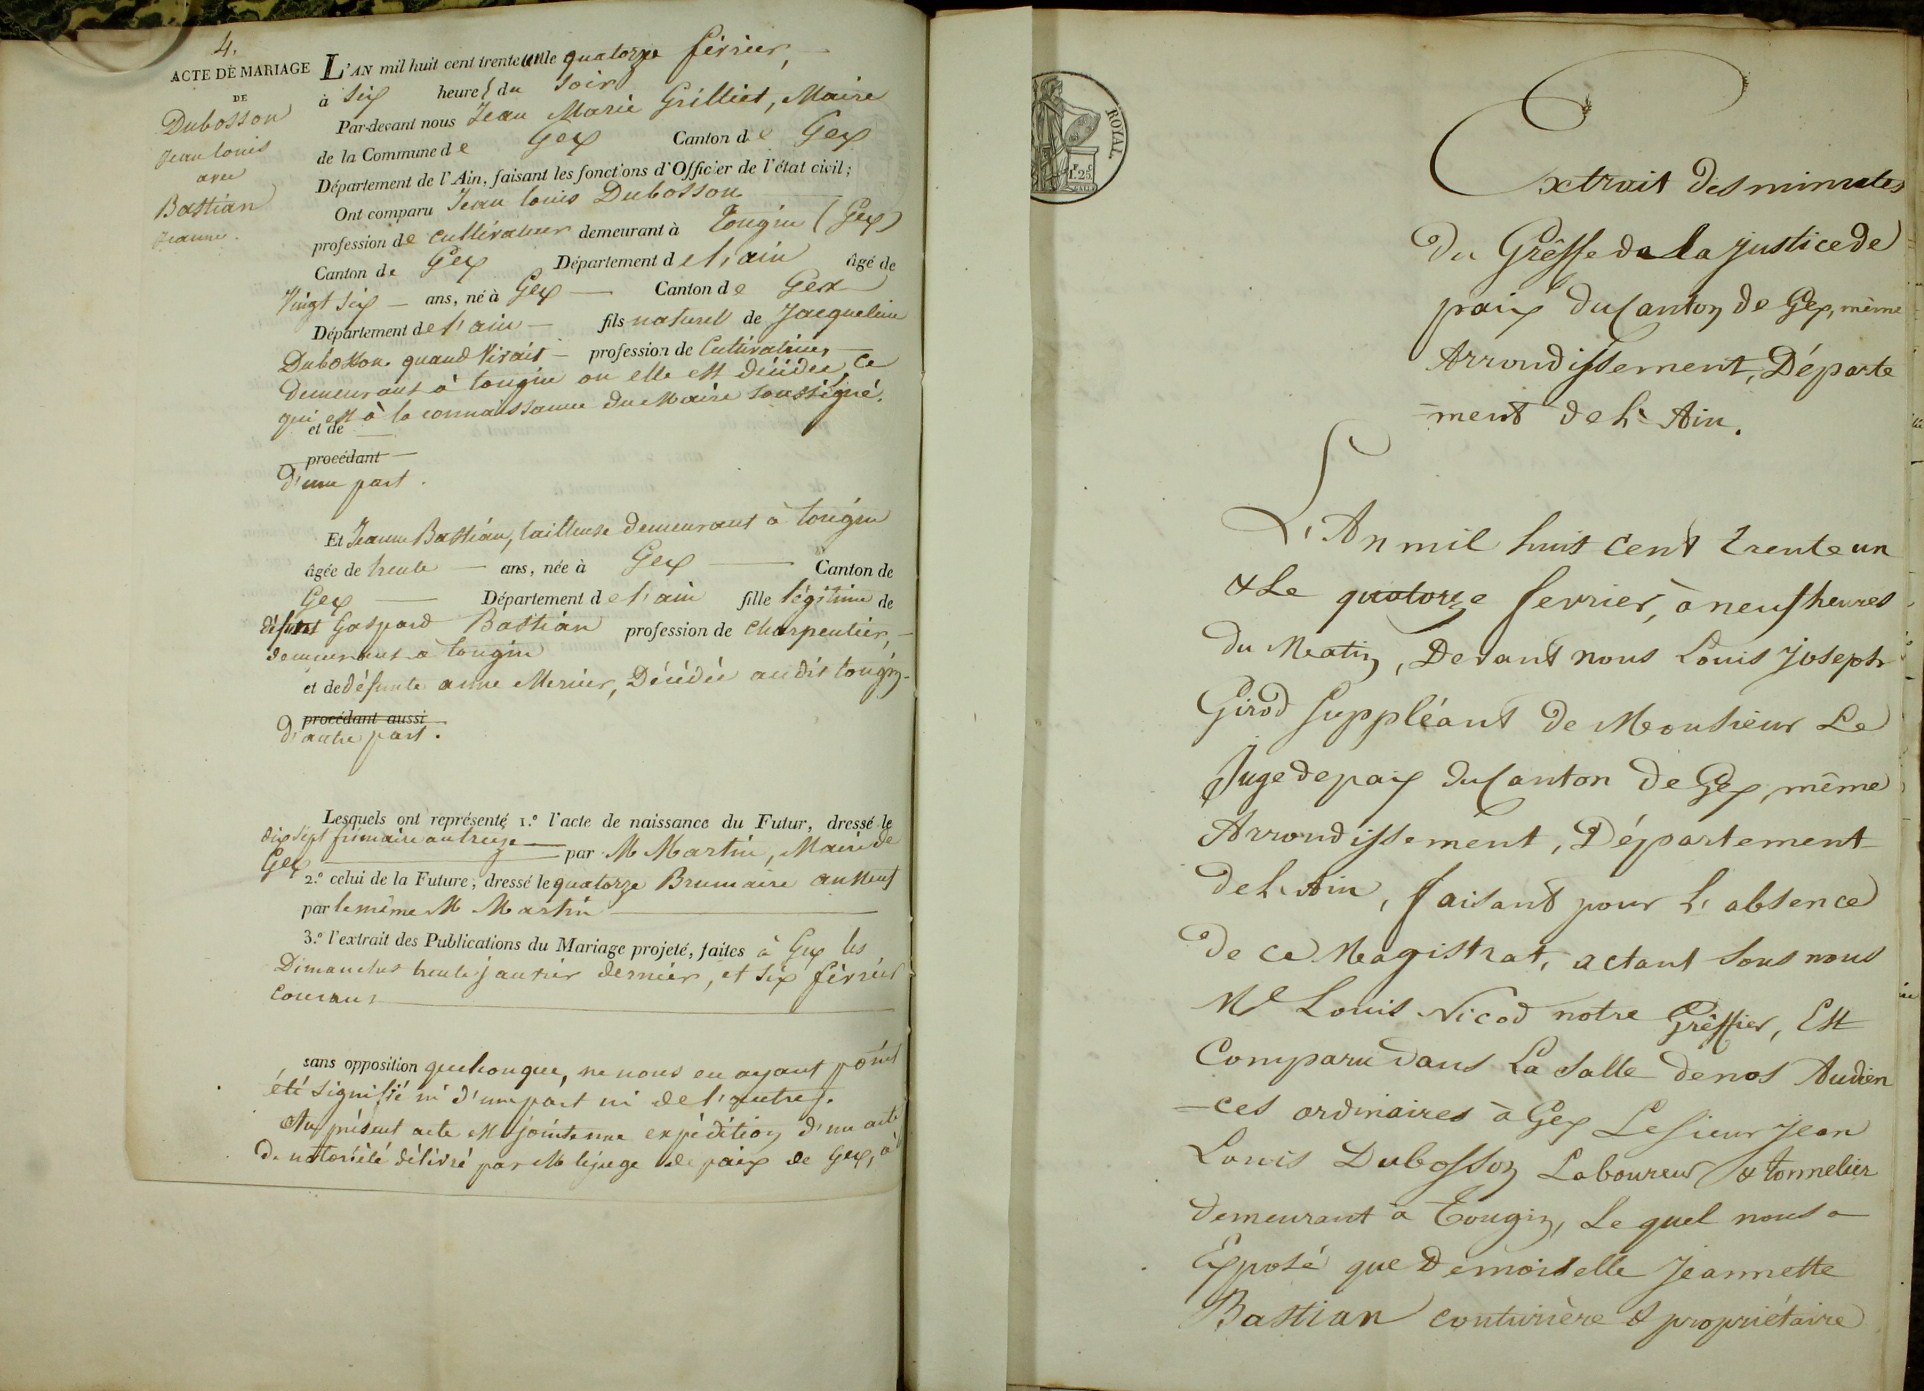 4.
ACTE DE MARIAGE
DE
Dubosson
Jean louis
avec
Bastian
Jeanne.
L'AN mil huit cent trente un le quatorze février,
à six heures du soir
Par-devant nous Jean Marie Grilliet, Maire
de la Commune de Gex Canton de Gex
Département de l'Ain, faisant les fonctions d'Officier de l'état civil;
Ont comparu Jean louis Dubosson
profession de cultivateur demeurant à Tougin (Gex)
Canton de Gex Département de l'ain âgé de
Vingt six ans, né à Gex Canton de Gex
Département de l'ain fils naturel de Jacqueline
Dubosson quand vivait profession de Cultivatrice,
demeurant à tougin ou elle est décédée, ce
qui est à la connaissance du Maire soussigné.
et de
procédant
D'une part.
Et Jeanne Bastian, tailleuse demeurant à tougin
âgée de trente ans, née à Gex Canton de
Gex Département de l'ain fille légitime de
défunt Gaspard Bastian profession de charpentier,
demeurant à tougin
et de défunte anne Mercier, Décédée audit tougin
procédant aussi
D'autre part.
Lesquels ont représenté 1.º l'acte de naissance du Futur, dressé le
dix sept frimaire an treize par M Martin, Maire de
Gex
2.º celui de la Future, dressé le quatorze Brumaire an neuf
par le même M Martin
3.º l'extrait des Publications du Mariage projeté, faites à Gex les
Dimanches trente janvier dernier, et six février
courant
sans opposition quelconque, ne nous en ayant point
été signifié ni d'une part ni de l'autre.
Au présent acte est jointe une expédition d'un acte
de notoriété délivré par M le juge de paix de Gex, à
ROYAL
1F. 25C.
Extrait des minutes
Du Grêffe de la justice de
paix du Canton de Gex, même
Arrondissement, Départe
=ment de L'Ain.
L'An mil huit cent trente un
& Le quatorze fevrier, à neuf heures
du Matin, Devant nous Louis Joseph
Girod suppléant de Monsieur Le
Juge de paix du Canton de Gex, même
Arrondissement, Département
de L'Ain, faisant pour L'absence
de ce Magistrat, actant sous nous
Me Louis Nicod notre Grêffier, Est
Comparu dans La salle de nos Audien
=ces ordinaires à Gex Le sieur Jean
Louis Dubosson Laboureur & tonnelier
demeurant à Tougin, Lequel nous a
Exposé que Demoiselle Jeannette
Bastian couturière & propriétaire